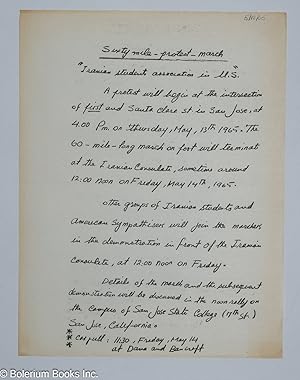 Sixty mile - protest - march
"Iranian students association in U.S."
A protest will begin at the intersection
of first and Santa Clara st in San Jose, at
4:00 P.m. on Thursday, May, 13th 1965. The
60-mile-long march on foot will terminate
at the Iranian Consulate, sometime around
12:00 noon on Friday, May 14th, 1965.
Other groups of Iranian students and
American Sympathisers will join the marchers
in the demonstration in front of the Iranian
Consulate, at 12:00 noon on Friday.
Details of the march and the subsequent
demonstration will be discussed in the noon rally on
the Campus of San Jose State College (7th St.)
San Jose, California.
*** Car pull: 11:30, Friday, May 14
at Dana and Bancroft
© Bolerium Books Inc.